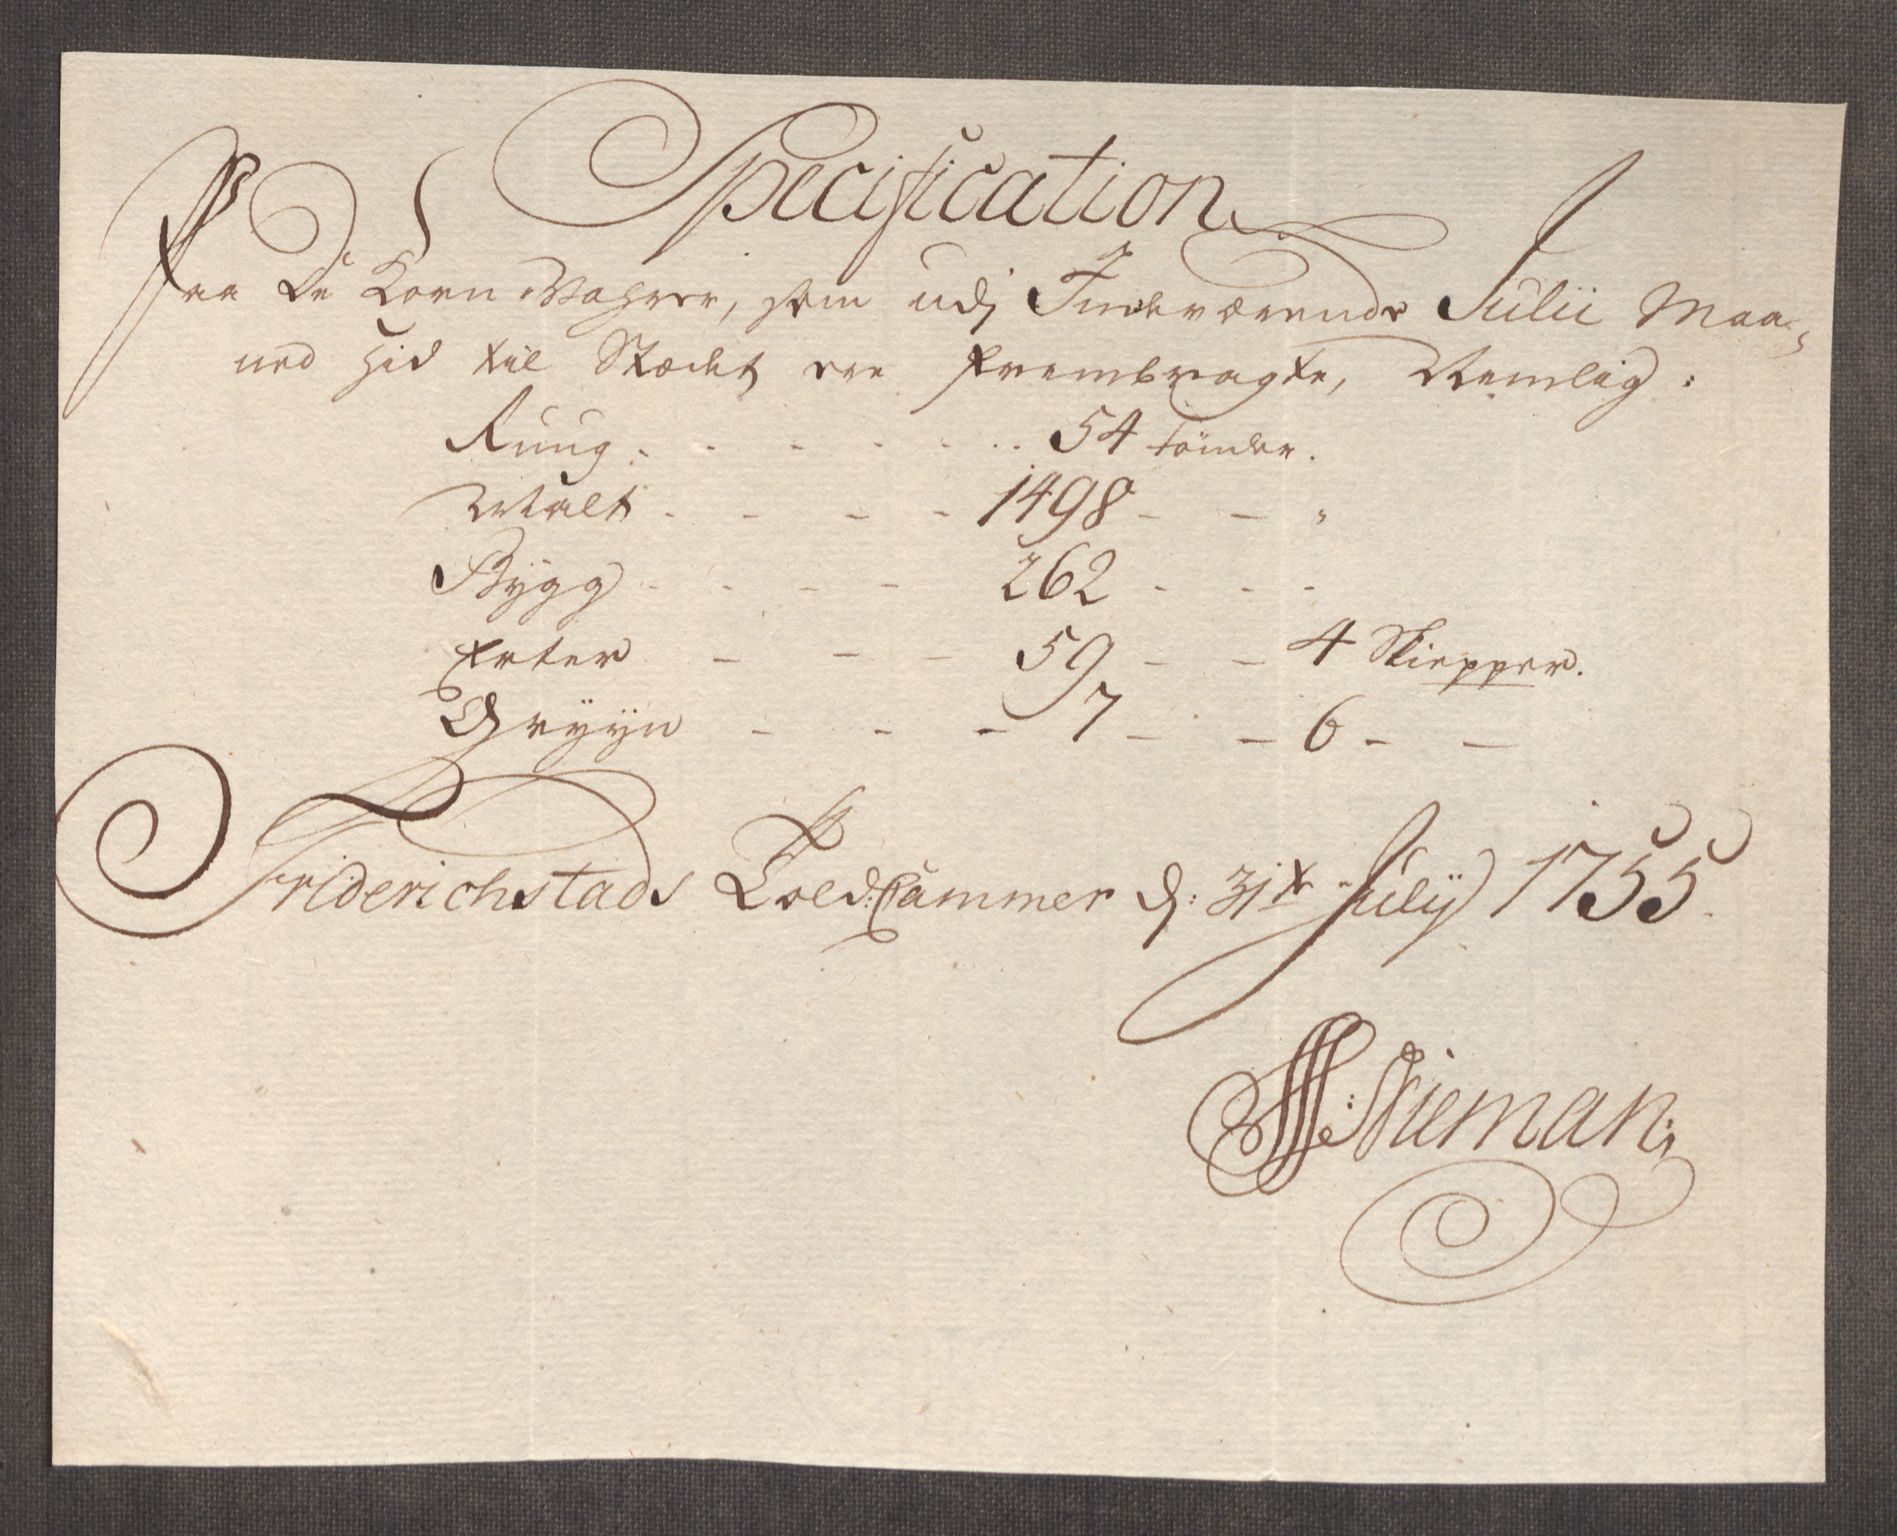 Specification
Paa De Korn-Vahrer, som udj Indeværende Julii Maa-
ned hid til Stædet ere frembragte, Nemlig:
Ruug . . . . . . 54 tönder.
Malt . - - - 1498 - - "
Bygg - - - - 262 - - -
Erter - - - 59 - - 4 Skiepper.
Gryyn - - - 7 - - 6 - -
Friderichstads Told-Cammer d: 31te Julij 1755.
Nieman